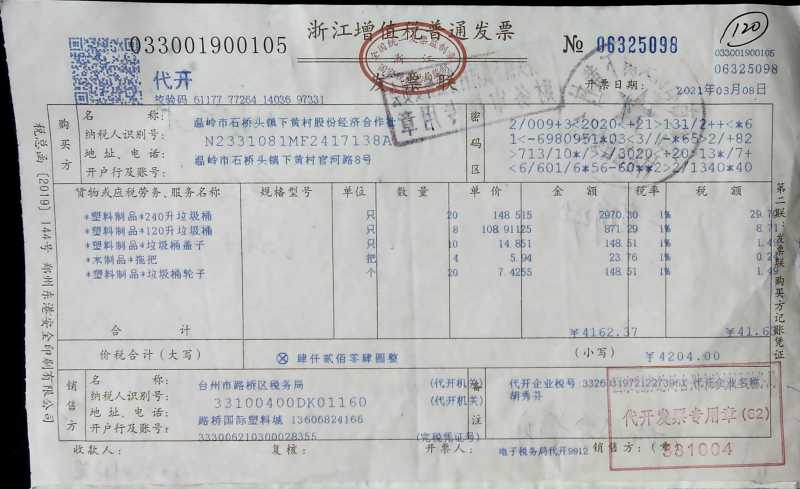 浙江增值税普通发票
发票联
033001900105
№ 06325098
120
033001900105
06325098
代开
校验码 61177 77264 14036 97331
开票日期: 2021年03月08日
税总函〔2019〕144号 郑州东港安全印刷有限公司
购买方
名称: 温岭市石桥头镇下黄村股份经济合作社
纳税人识别号: N2331081MF2417138A
地址、电话: 温岭市石桥头镇下黄村官河路8号
开户行及账号:
密码区
货物或应税劳务、服务名称 规格型号 单位 数量 单价 金额 税率 税额
*塑料制品*240升垃圾桶 只 20 148.515 2970.30 1% 29.70
*塑料制品*120升垃圾桶 只 8 108.91125 871.29 1% 8.71
*塑料制品*垃圾桶盖子 只 10 14.851 148.51 1% 1.49
*木制品*拖把 把 4 5.94 23.76 1% 0.24
*塑料制品*垃圾桶轮子 个 20 7.4255 148.51 1% 1.49
合计 ¥4162.37 ¥41.63
价税合计(大写) ⊗ 肆仟贰佰零肆圆整 (小写) ¥4204.00
销售方
名称: 台州市路桥区税务局 (代开机关)
纳税人识别号: 33100400DK01160 (代开机关)
地址、电话: 路桥国际塑料城 13606824166
开户行及账号: 333006210300028355 (完税凭证号)
备注
代开企业税号
胡秀芬
代开发票专用章(62)
331004
收款人: 复核: 开票人: 电子税务局代开9912 销售方:(章)
第二联:发票联 购买方记账凭证